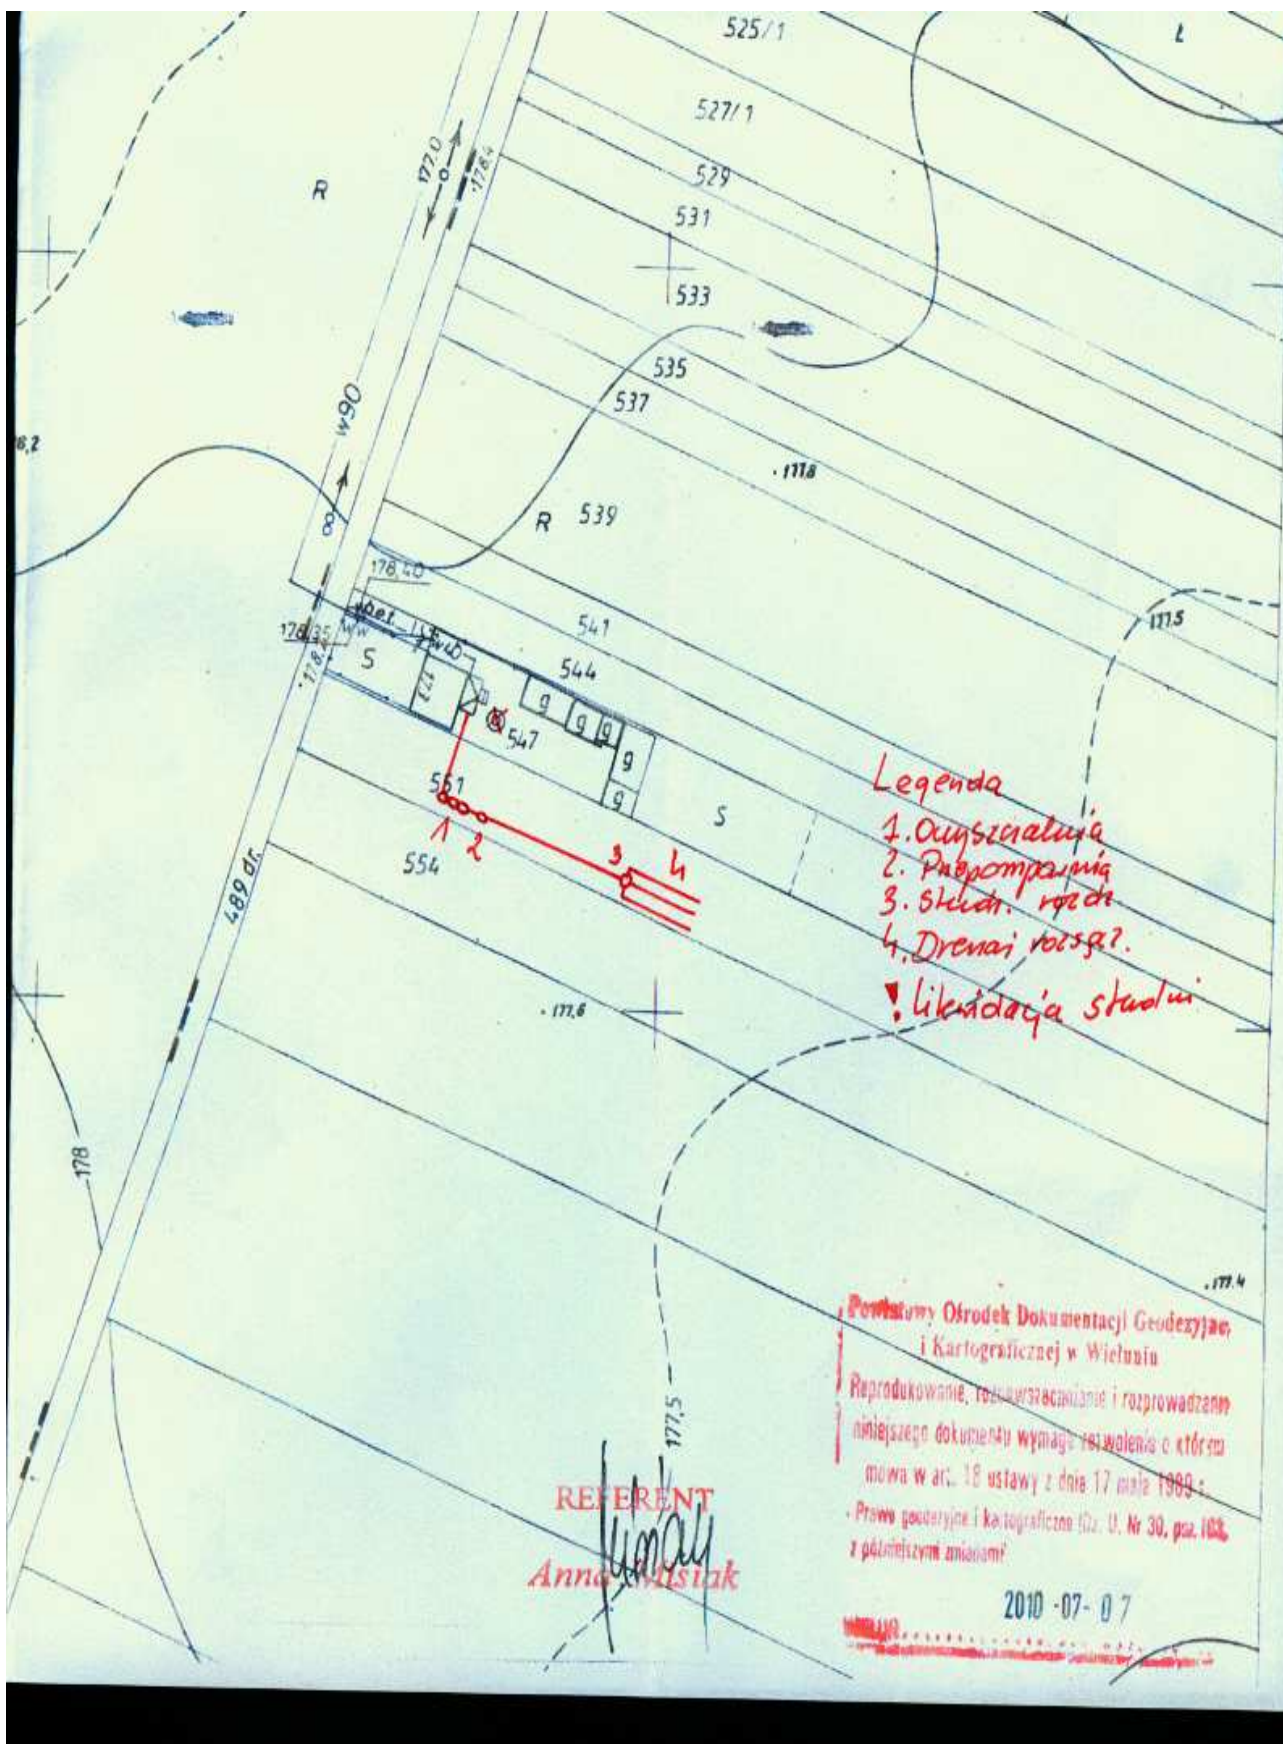 525/1
Ł
527/1
177.0
178.4
R
529
531
533
535
537
w90
8,2
.177,8
R 539
178,40
bet.
541
177,5
178,35
w40
S
544
178,2
g
g
g
547
g
g
551
S
1
2
3
4
554
489 dr.
Legenda
1. Oczyszczalnia
2. Przepompownia
3. Studz. rozdz
4. Drenaż rozsącz.
! likwidacja studni
.177,6
178
.177.4
177,5
Powiatowy Ośrodek Dokumentacji Geodezyjnej
i Kartograficznej w Wieluniu
Reprodukowanie, rozpowszechnianie i rozprowadzanie
niniejszego dokumentu wymaga zezwolenia o którym
mowa w art. 18 ustawy z dnia 17 maja 1989 r.
- Prawo geodezyjne i kartograficzne (Dz. U. Nr 30, poz. 163,
z późniejszymi zmianami)
REFERENT
Anna Misiak
2010 -07- 07